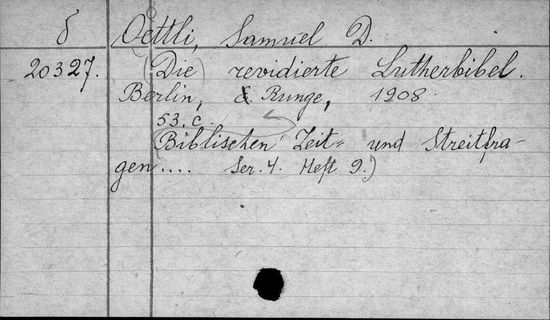 8 Oettli, Samuel D.
20327. (Die) revidierte Lutherbibel.
Berlin, Runge, 1908.
53. c.
(Biblischen Zeit= und Streitfra-
gen.... Ser. 4. Heft 9.)